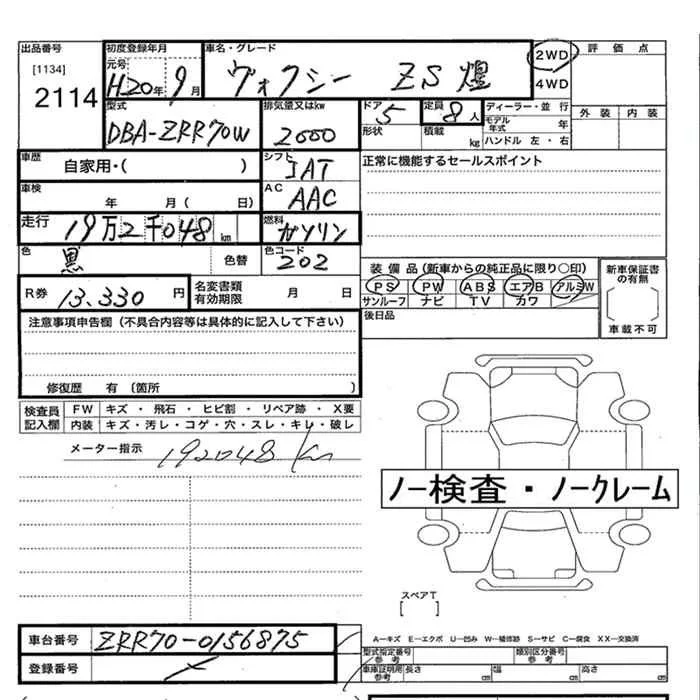 出品番号 初度登録年月 車名・グレード 2WD 評価点
[1134] 元号 H20年 9月 ヴォクシー ZS 煌 4WD
2114 型式 排気量又はkw ドア 5 定員 8人 ディーラー・並行 外装 内装
DBA-ZRR70W 2000 形状 積載 kg モデル年式 年
ハンドル 左・右
車歴 自家用・( ) シフト IAT 正常に機能するセールスポイント
車検 年 月( 日) AC AAC
走行 19万2千048km 燃料 ガソリン
色 黒 色替 色コード 202 装備品(新車からの純正品に限り○印) 新車保証書の有無
R券 13.330円 名変書類有効期限 月 日 PS PW ABS エアB アルミW
サンルーフ ナビ TV カワ
注意事項申告欄(不具合内容等は具体的に記入して下さい) 後日品 車載不可
修復歴 有 〔箇所 〕
検査員記入欄 FW キズ・飛石・ヒビ割・リペア跡・X要
内装 キズ・汚レ・コゲ・穴・スレ・キレ・破レ
メーター指示 192048km
ノー検査・ノークレーム
スペアT
[ ]
車台番号 ZRR70-0156875 A―キズ E―エクボ U―凹み W―補修跡 S―サビ C―腐食 XX―交換済
登録番号 型式指定番号参考 類別区分番号参考
車庫証明用参考 長さ cm 幅 cm 高さ cm